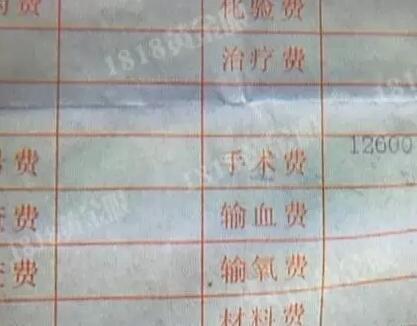 费 化验费
治疗费
费 手术费 12600
费 输血费
费 输氧费
材料费
1818黄金眼
1818黄金眼